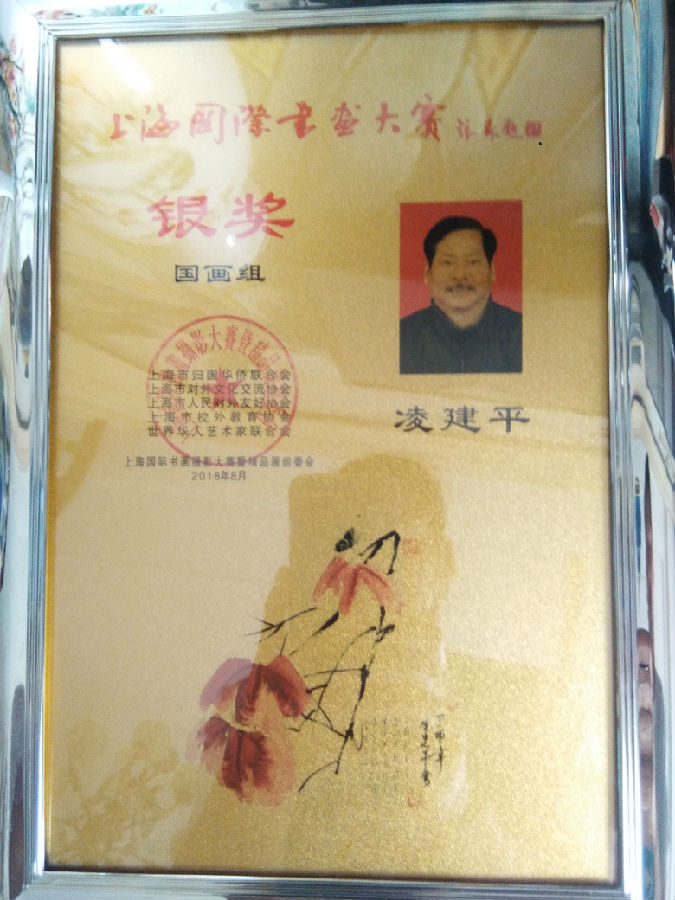 上海国際书画大赛
银奖
国画组
凌建平
上海市归国华侨联合会
上海市对外文化交流协会
上海市人民对外友好协会
上海市校外教育协会
世界华人艺术家联合会
上海国际书画摄影大赛暨精品展组委会
2018年8月